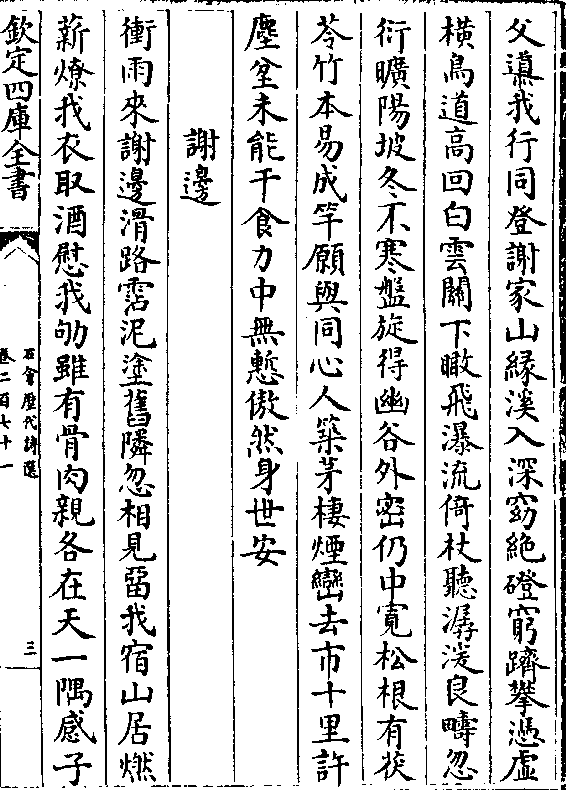 父邀我行同登謝家山緣溪入深窈絶磴窮躋攀憑虛
橫鳥道高回白雲關下瞰飛瀑流倚杖聽潺湲良疇忽
衍曠陽坡冬不寒盤旋得幽谷外密仍中寛松根有茯
苓竹本易成竿願與同心人築茅棲煙巒去市十里許
塵坌未能干食力中無慙傲然身世安
謝邊
衝雨來謝邊滑路霑泥塗舊隣忽相見畱我宿山居燃
薪燎我衣取酒慰我劬雖有骨肉親各在天一隅感子
欽定四庫全書
石倉歷代詩選
卷二百七十一
三